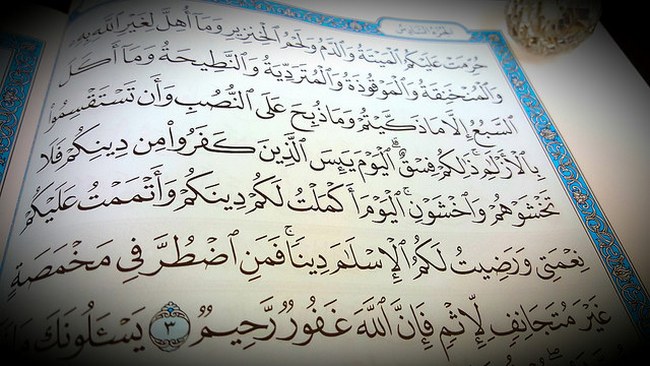 الجزء السادس
حُرِّمَتْ عَلَيْكُمُ ٱلْمَيْتَةُ وَٱلدَّمُ وَلَحْمُ ٱلْخِنزِيرِ وَمَآ أُهِلَّ لِغَيْرِ ٱللَّهِ بِهِۦ
وَٱلْمُنْخَنِقَةُ وَٱلْمَوْقُوذَةُ وَٱلْمُتَرَدِّيَةُ وَٱلنَّطِيحَةُ وَمَآ أَكَلَ
ٱلسَّبُعُ إِلَّا مَا ذَكَّيْتُمْ وَمَا ذُبِحَ عَلَى ٱلنُّصُبِ وَأَن تَسْتَقْسِمُوا۟
بِٱلْأَزْلَٰمِ ذَٰلِكُمْ فِسْقٌ ۗ ٱلْيَوْمَ يَئِسَ ٱلَّذِينَ كَفَرُوا۟ مِن دِينِكُمْ فَلَا
تَخْشَوْهُمْ وَٱخْشَوْنِ ۚ ٱلْيَوْمَ أَكْمَلْتُ لَكُمْ دِينَكُمْ وَأَتْمَمْتُ عَلَيْكُمْ
نِعْمَتِى وَرَضِيتُ لَكُمُ ٱلْإِسْلَٰمَ دِينًا ۚ فَمَنِ ٱضْطُرَّ فِى مَخْمَصَةٍ
غَيْرَ مُتَجَانِفٍ لِّإِثْمٍ فَإِنَّ ٱللَّهَ غَفُورٌ رَّحِيمٌ ٣ يَسْـَٔلُونَكَ